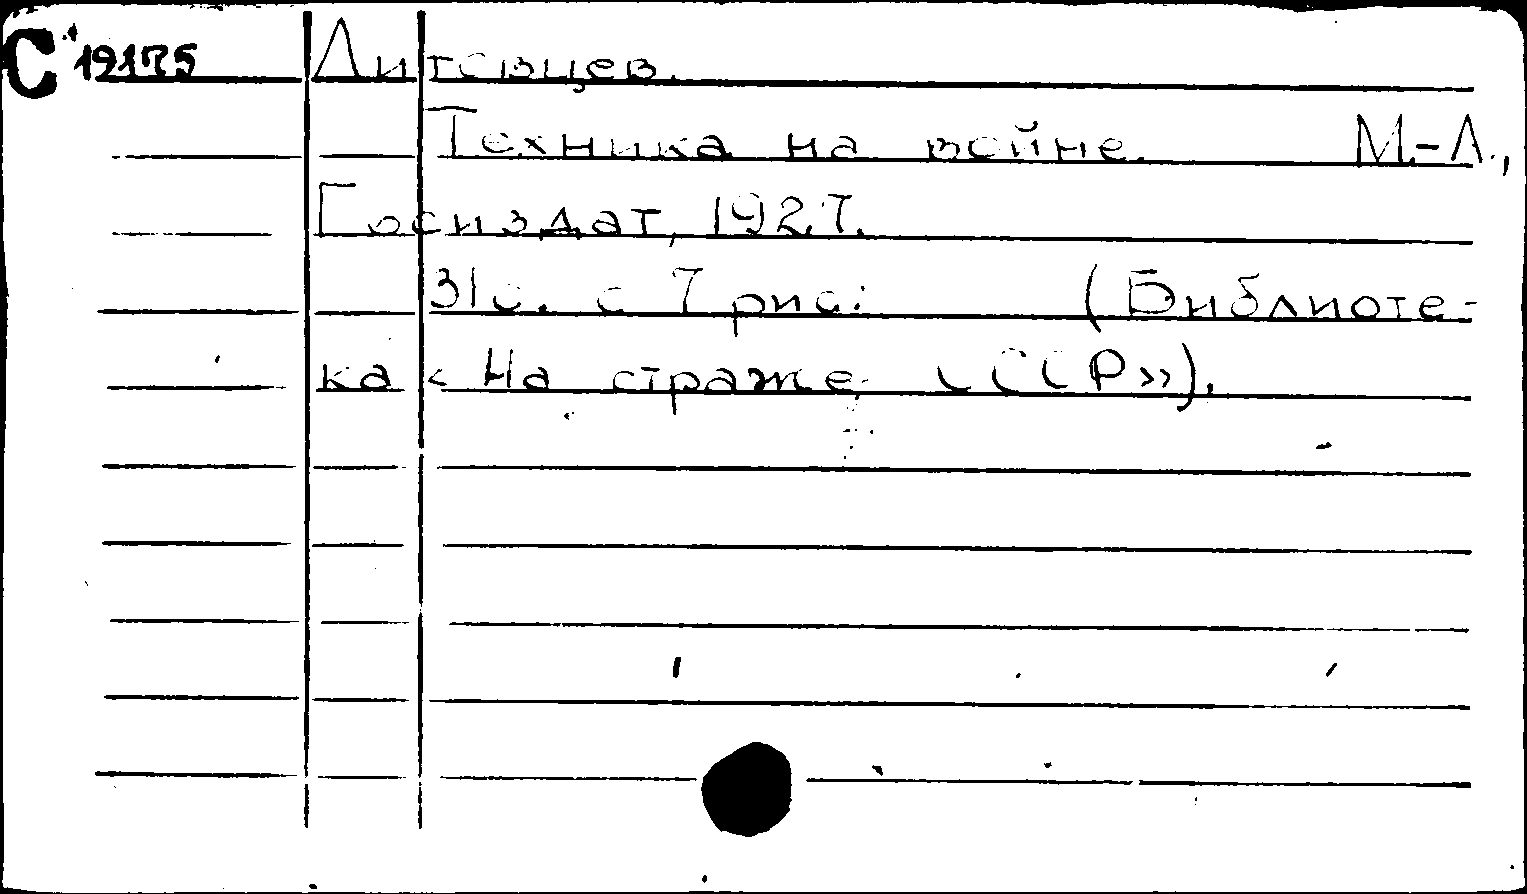 С 19175 Литовцев.
Техника на войне. М.-Л.,
Госиздат, 1927.
31 с. с 7 рис. (Библиоте-
ка «На страже СССР»).